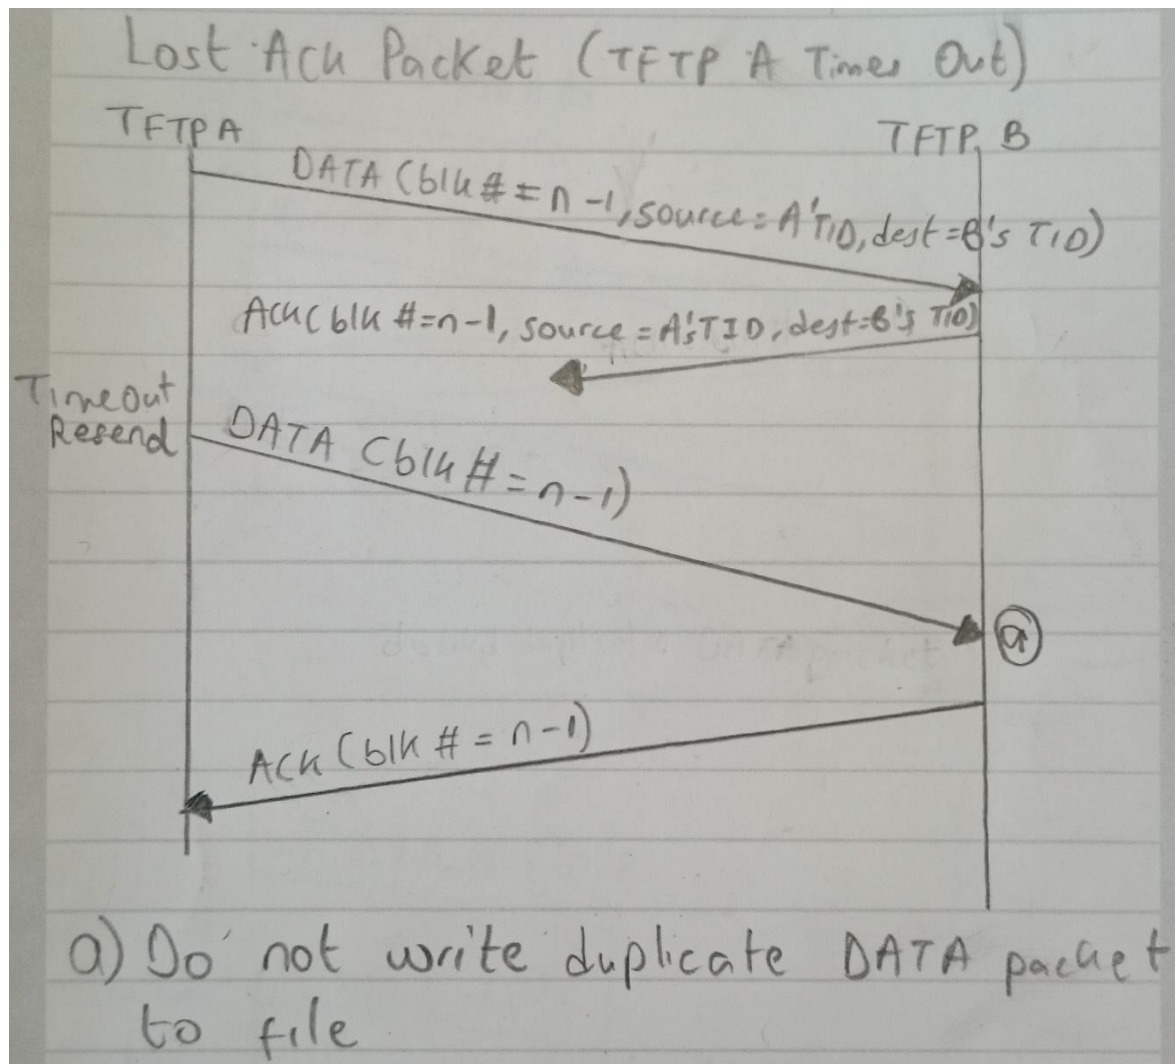 Lost Ack Packet (TFTP A Times Out)
TFTP A
TFTP B
DATA (blk # = n-1, source = A'TID, dest = B's TID)
Ack (blk # = n-1, source = A's TID, dest = B's TID)
Timeout
Resend
DATA (blk # = n-1)
a
ACK (blk # = n-1)
a) Do not write duplicate DATA packet
to file